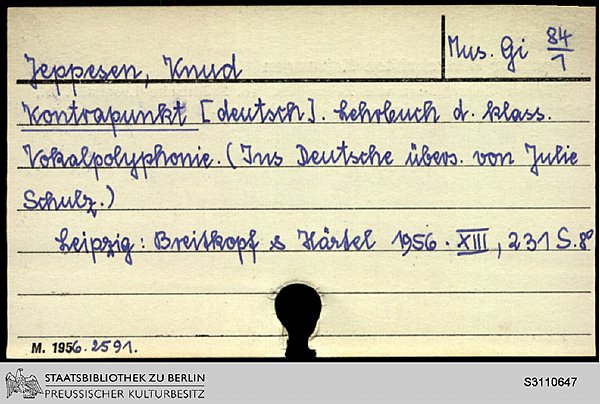 Jeppesen, Knud
Mus. Gi 84/1
Kontrapunkt [deutsch]. Lehrbuch d. klass.
Vokalpolyphonie. (Ins Deutsche übers. von Julie
Schulz.)
Leipzig: Breitkopf & Härtel 1956. XIII, 231 S. 8°
M. 1956. 2591.
STAATSBIBLIOTHEK ZU BERLIN
PREUSSISCHER KULTURBESITZ
S3110647